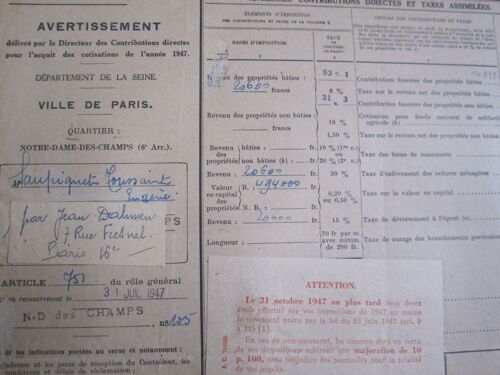 CONTRIBUTIONS DIRECTES ET TAXES ASSIMILÉES.
AVERTISSEMENT
délivré par le Directeur des Contributions directes
pour l'acquit des cotisations de l'année 1947.
DÉPARTEMENT DE LA SEINE.
VILLE DE PARIS.
QUARTIER :
NOTRE-DAME-DES-CHAMPS (6e Arr.)
Saupiquet Toussaint
par Jean Dahmen
7 Rue Fresnel
Paris 16e
MPS
ARTICLE 751 du rôle général
en recouvrement le 31 JUIL 1947
N-D des CHAMPS
No 105
les indications portées au verso et notamment :
et jours de réception du Contrôleur, les
conditions et délais de réclamation.
ÉLÉMENTS D'IMPOSITION
DES CONTRIBUTIONS ET TAXES DE LA COLONNE 5.
NATURE DES CONTRIBUTIONS ET TAXES
BASES D'IMPOSITION.
TAUX
Revenu des propriétés bâties :
20600 francs
53 c. 1
Contribution foncière des propriétés bâties
6 %
Taxe sur le revenu net des propriétés bâties
31 3
Contribution foncière des propriétés non bâties
Revenu des propriétés non bâties :
francs
16 %
Cotisation pour fonds national de solidarité
agricole (k)
1,50 %
Taxe sur le revenu net des propriétés non bâties
Revenu des propriétés bâties fr.
10 % (1re c.)
Taxe des biens de mainmorte
propriétés non bâties (k) : fr.
20 % (2e c.)
Revenu : 20600 fr.
30 %
Taxe d'enlèvement des ordures ménagères
Valeur en capital des N. B. : 494000 fr.
0,20 %
ou 0,50 %
Taxe sur la valeur en capital
Revenu : 20600 fr.
15 %
Taxe de déversement à l'égout
Longueur :
70 fr par m.
avec minim.
de 200 fr.
Taxe de curage des branchements particuliers
ATTENTION.
Le 31 octobre 1947 au plus tard vous devez
avoir effectué sur vos impositions de 1947 au moins
le versement prévu par la loi du 25 juin 1947 (art. 9
à 12) [1].
En cas de non-payement, les sommes dues en vertu
de ces dispositions subiront une majoration de 10
p. 100, sans préjudice des poursuites pour la totalité
de vos impôts.